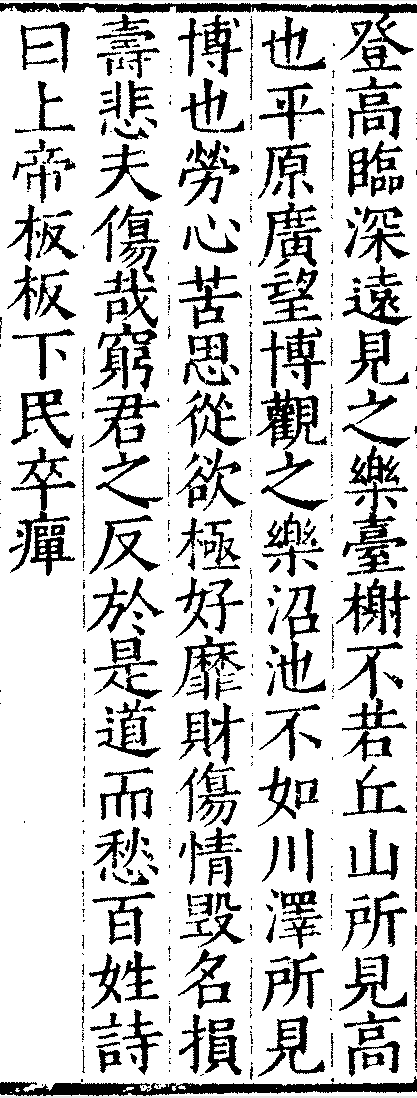 登高臨深遠見之樂臺榭不若丘山所見高
也平原廣望博觀之樂沼池不如川澤所見
博也勞心苦思從欲極好靡財傷情毀名損
壽悲夫傷哉窮君之反於是道而愁百姓詩
曰上帝板板下民卒癉